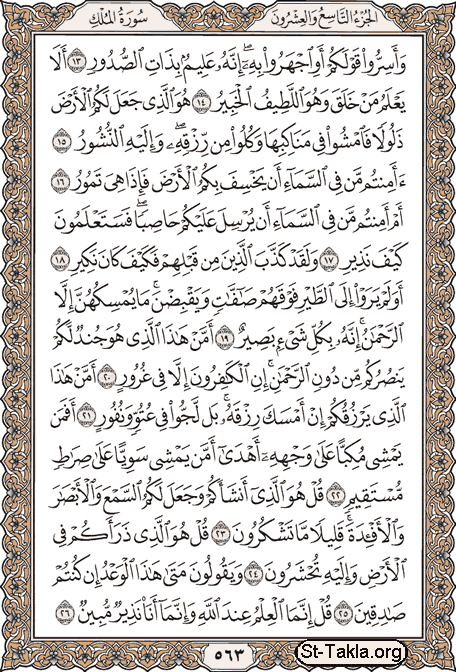 الجُزْءُ التَّاسِعُ وَالعِشْرُونَ سُورَةُ المُلْكِ
وَأَسِرُّوا۟ قَوْلَكُمْ أَوِ ٱجْهَرُوا۟ بِهِۦٓ ۖ إِنَّهُۥ عَلِيمٌۢ بِذَاتِ ٱلصُّدُورِ ١٣ أَلَا
يَعْلَمُ مَنْ خَلَقَ وَهُوَ ٱللَّطِيفُ ٱلْخَبِيرُ ١٤ هُوَ ٱلَّذِى جَعَلَ لَكُمُ ٱلْأَرْضَ
ذَلُولًا فَٱمْشُوا۟ فِى مَنَاكِبِهَا وَكُلُوا۟ مِن رِّزْقِهِۦ ۖ وَإِلَيْهِ ٱلنُّشُورُ ١٥
ءَأَمِنتُم مَّن فِى ٱلسَّمَآءِ أَن يَخْسِفَ بِكُمُ ٱلْأَرْضَ فَإِذَا هِىَ تَمُورُ ١٦
أَمْ أَمِنتُم مَّن فِى ٱلسَّمَآءِ أَن يُرْسِلَ عَلَيْكُمْ حَاصِبًا ۖ فَسَتَعْلَمُونَ
كَيْفَ نَذِيرِ ١٧ وَلَقَدْ كَذَّبَ ٱلَّذِينَ مِن قَبْلِهِمْ فَكَيْفَ كَانَ نَكِيرِ ١٨
أَوَلَمْ يَرَوْا۟ إِلَى ٱلطَّيْرِ فَوْقَهُمْ صَٰٓفَّٰتٍ وَيَقْبِضْنَ ۚ مَا يُمْسِكُهُنَّ إِلَّا
ٱلرَّحْمَٰنُ ۚ إِنَّهُۥ بِكُلِّ شَىْءٍۭ بَصِيرٌ ١٩ أَمَّنْ هَٰذَا ٱلَّذِى هُوَ جُندٌ لَّكُمْ
يَنصُرُكُم مِّن دُونِ ٱلرَّحْمَٰنِ ۚ إِنِ ٱلْكَٰفِرُونَ إِلَّا فِى غُرُورٍ ٢٠ أَمَّنْ هَٰذَا
ٱلَّذِى يَرْزُقُكُمْ إِنْ أَمْسَكَ رِزْقَهُۥ ۚ بَل لَّجُّوا۟ فِى عُتُوٍّ وَنُفُورٍ ٢١ أَفَمَن
يَمْشِى مُكِبًّا عَلَىٰ وَجْهِهِۦٓ أَهْدَىٰٓ أَمَّن يَمْشِى سَوِيًّا عَلَىٰ صِرَٰطٍ
مُّسْتَقِيمٍ ٢٢ قُلْ هُوَ ٱلَّذِىٓ أَنشَأَكُمْ وَجَعَلَ لَكُمُ ٱلسَّمْعَ وَٱلْأَبْصَٰرَ
وَٱلْأَفْـِٔدَةَ ۖ قَلِيلًا مَّا تَشْكُرُونَ ٢٣ قُلْ هُوَ ٱلَّذِى ذَرَأَكُمْ فِى
ٱلْأَرْضِ وَإِلَيْهِ تُحْشَرُونَ ٢٤ وَيَقُولُونَ مَتَىٰ هَٰذَا ٱلْوَعْدُ إِن كُنتُمْ
صَٰدِقِينَ ٢٥ قُلْ إِنَّمَا ٱلْعِلْمُ عِندَ ٱللَّهِ وَإِنَّمَآ أَنَا۠ نَذِيرٌ مُّبِينٌ ٢٦
٥٦٣
St-Takla.org